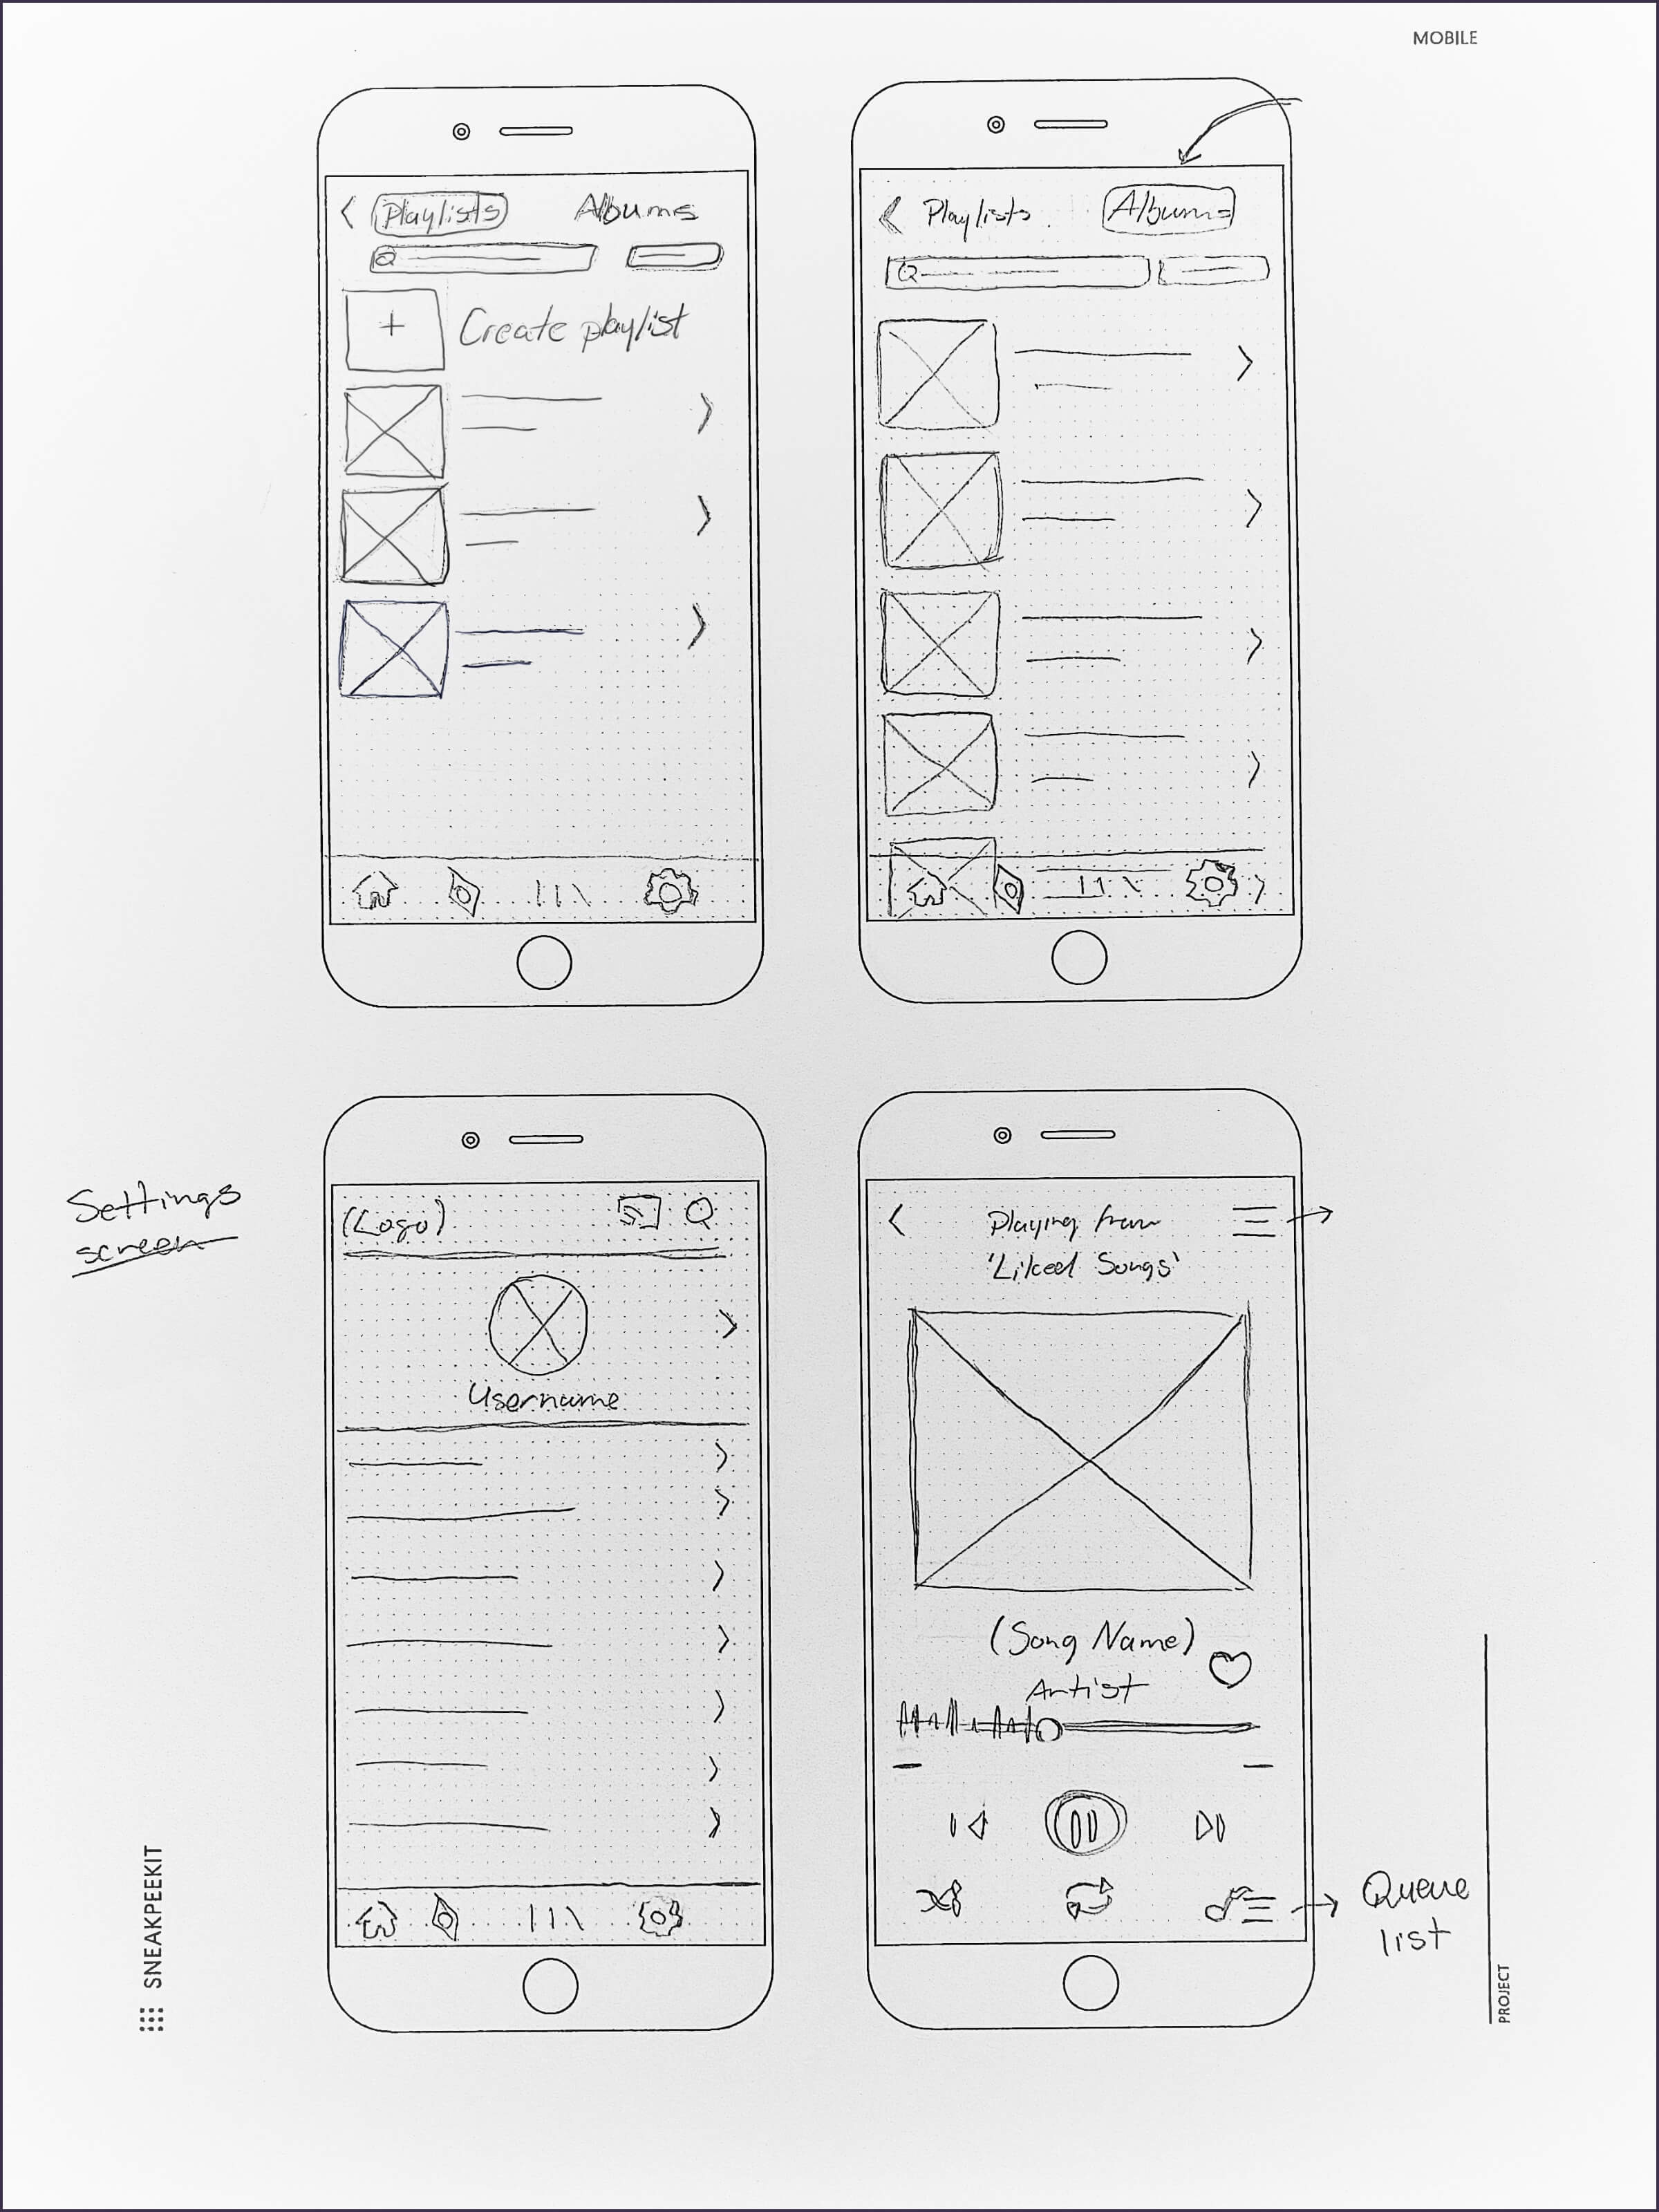 MOBILE
Playlists Albums
Create playlist
Playlists Albums
Settings
screen
(Logo)
Username
Playing from
'Liked Songs'
(Song Name)
Artist
Queue
list
SNEAKPEEKIT
PROJECT